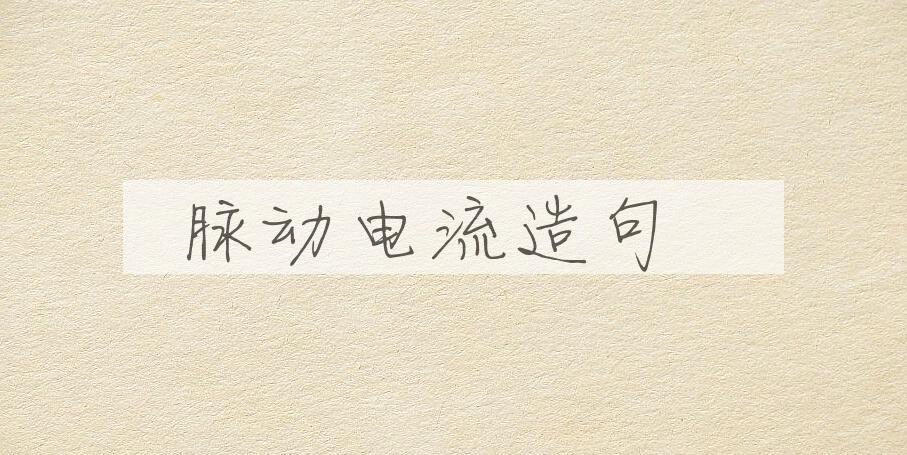 脉动电流造句